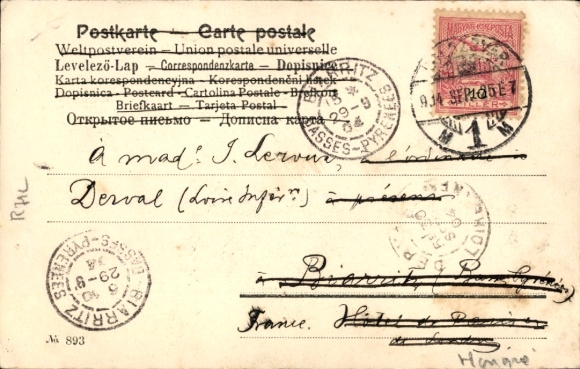 Postkarte — Carte postale
Weltpostverein — Union postale universelle
Levelező-Lap — Correspondenzkarte — Dopisnice
Karta korespondencyjna — Korespondenční lístek
Dopisnica — Postcard — Cartolina Postale — Brefkort
Briefkaart — Tarjeta Postal
Открытое письмо — Дописна карта
MAGYAR KIR. POSTA
FILLÉR
904 SEP 25 E7
1
M M
BIARRITZ
29-9
04
BASSES-PYRÉNÉES
À Made J. Leroux,
Derval (Loire Inférre) à présent
à Biarritz (Basses Pyrénées)
France. Hôtel de Paris
de Londres
R7HL
BIARRITZ
29-9
04
BASSES-PYRENEES
LOIRE
№ 893
Hongrie